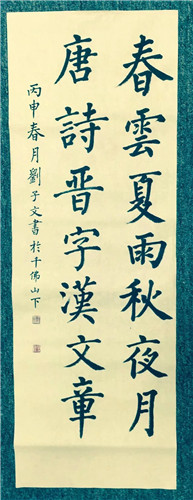 春雲夏雨秋夜月
唐詩晉字漢文章
丙申春月劉子文書於千佛山下